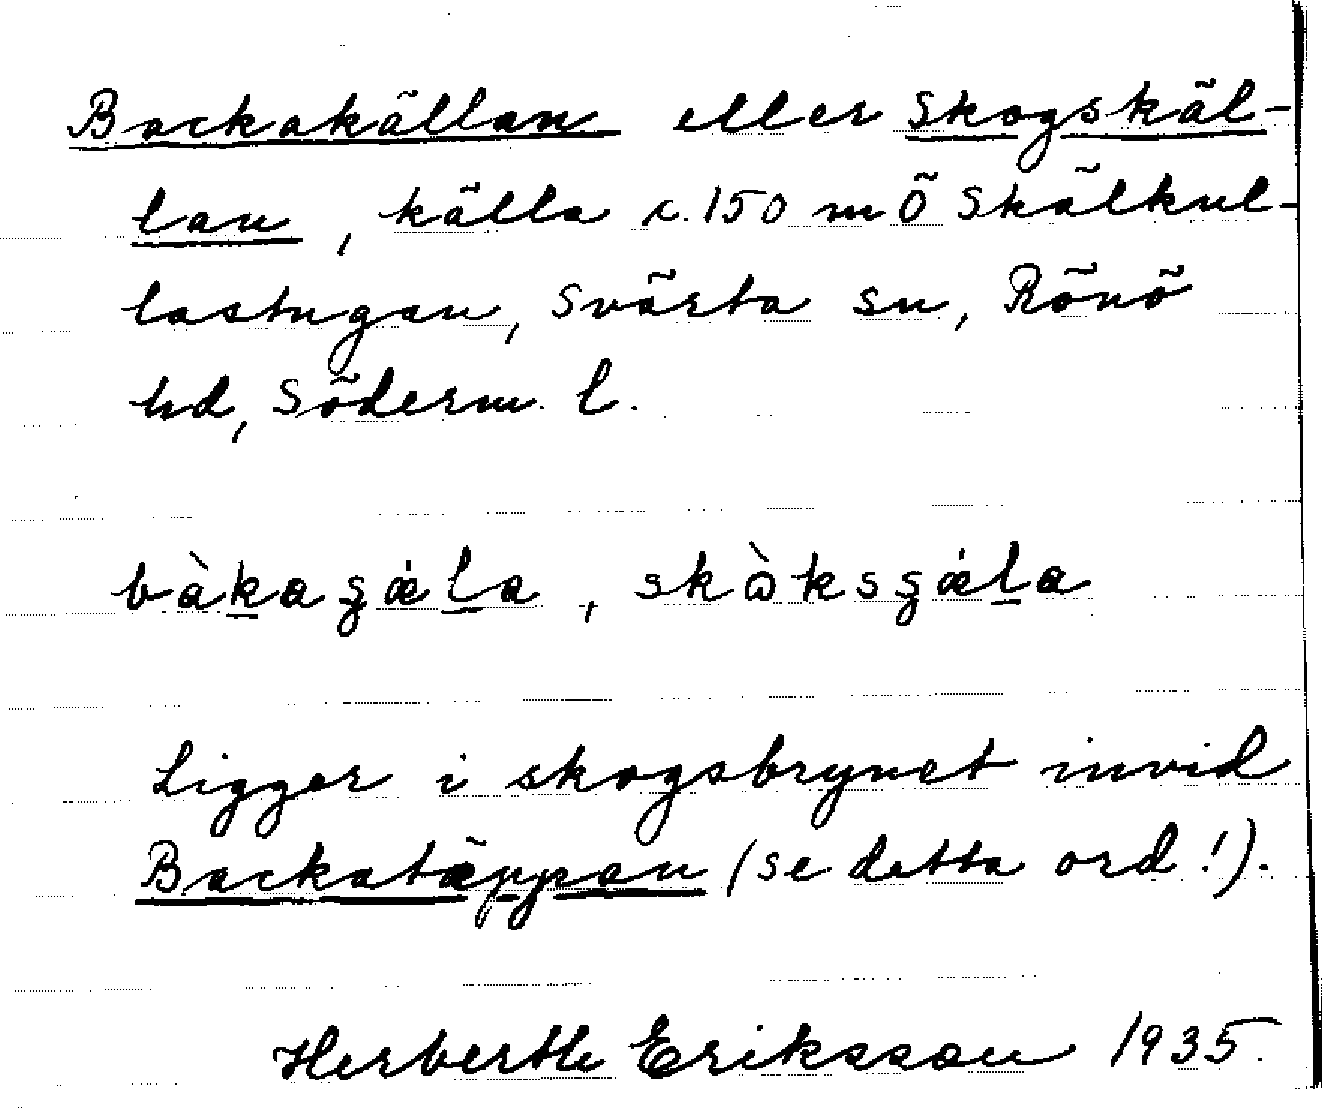 Backakällan eller Skogskäl-
lan, källa c. 150 m Ö Skälkul-
lastugan, Svärta sn, Rönö
hd, Söderm. l.
bàkagǽla, skὼksgǽla
Ligger i skogsbrynet invid
Backatäppan (se detta ord!).
Herberth Eriksson 1935.